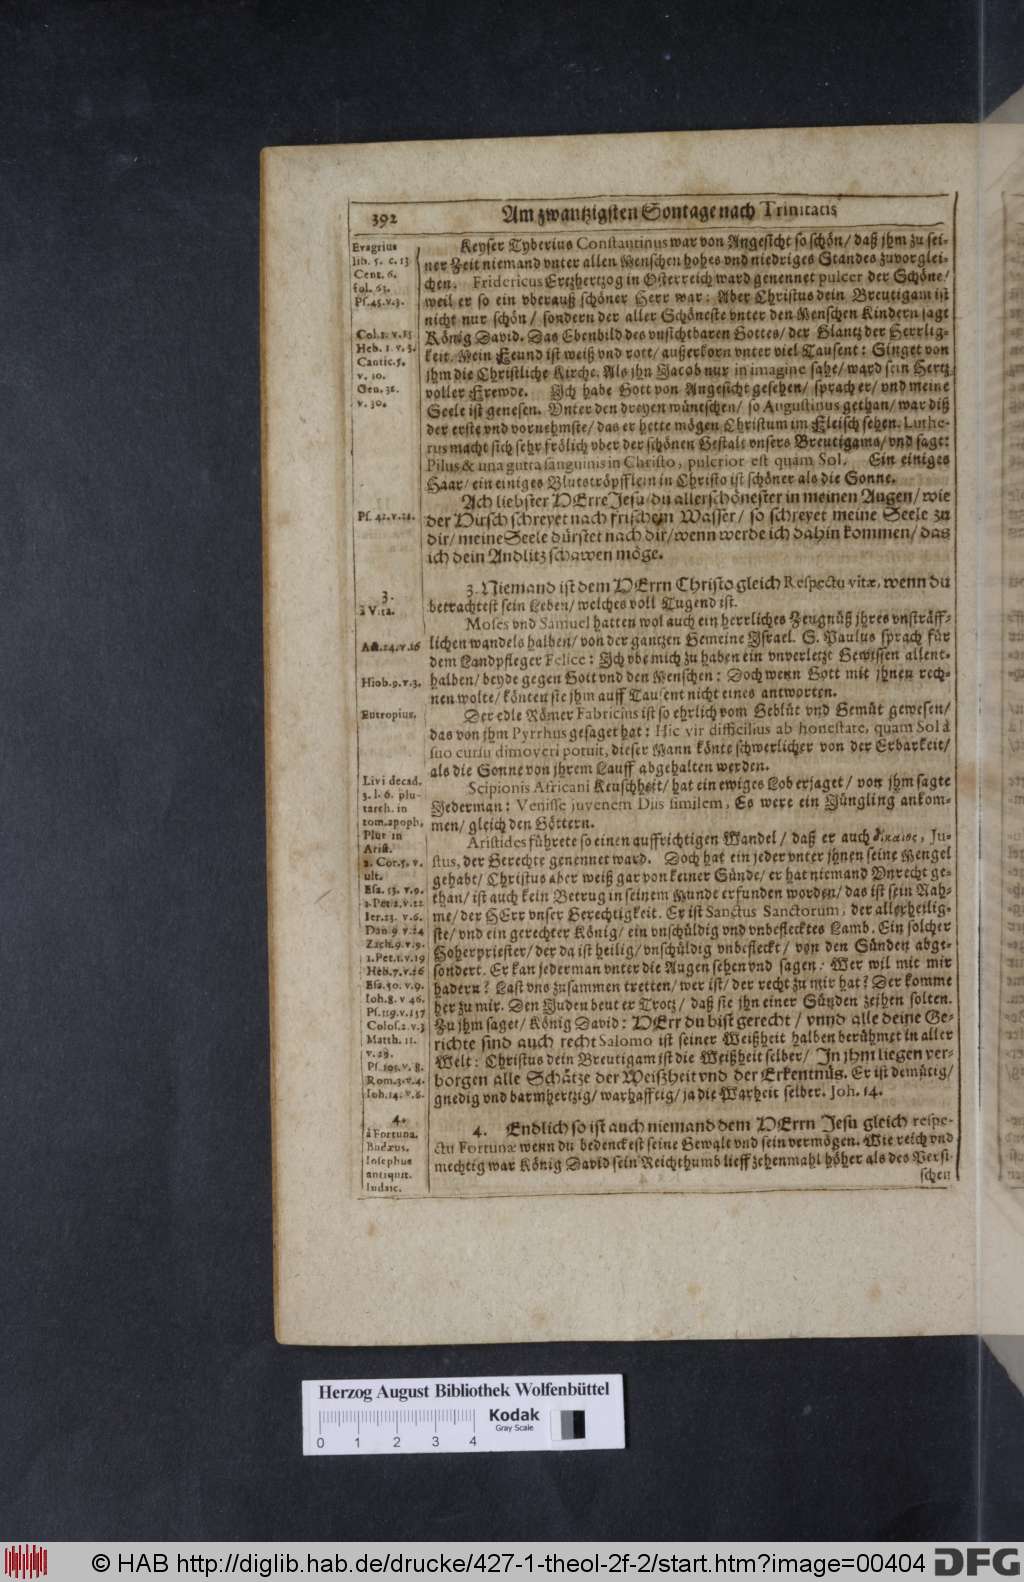 392 Am zwantzigsten Sontage nach Trinitatis
Evagrius
lib. 5. c. 13
Cent. 6.
fol. 63.
Ps. 45. v. 3.
Col. 1. v. 15
Heb. 1. v. 3.
Cantic. 5.
v. 10.
Gen. 32.
v. 30.
Ps. 42. v. 2.
3.
à Vita.
Act. 24. v. 16
Hiob. 9. v. 3.
Eutropius.
Livi decad.
3. l. 6. plu-
tarch. in
tom. apoph.
Plut in
Arist.
2. Cor. 5. v.
ult.
Esa. 53. v. 9.
1. Pet 2. v. 22
Ier. 23. v. 6.
Dan. 9 v. 24
Zach. 9. v. 9.
1. Pet. 1. v. 19
Heb. 7. v. 26
Esa. 50. v. 9.
Ioh. 8. v 46.
Ps. 119. v. 137
Colos. 2. v. 3
Matth. 11.
v. 29.
Ps. 103. v. 8.
Rom. 3. v. 4.
Ioh. 14. v. 6.
4.
à Fortuna.
Budæus.
Iosephus
antiquit.
Iudaic.
Keyser Tyberius Constantinus war von Angesicht so schön/ daß jhm zu sei-
ner Zeit niemand vnter allen Menschen hohes vnd niedriges Standes zuvorglei-
chen. Fridericus Ertzhertzog in Osterreich ward genennet pulcer der Schöne/
weil er so ein vberauß schöner Herr war: Aber Christus dein Breutigam ist
nicht nur schön/ sondern der aller Schöneste vnter den Menschen Kindern sagt
König David. Das Ebenbild des vnsichtbaren Gottes/ der Glantz der Herrlig-
keit. Mein Feund ist weiß vnd rott/ außerkorn vnter viel Tausent: Singet von
jhm die Christliche Kirche. Als jhn Jacob nur in imagine sahe/ ward sein Hertz
voller Frewde. Ich habe Gott von Angesicht gesehen/ sprach er/ vnd meine
Seele ist genesen. Vnter den dreyen wüntschen/ so Augustinus gethan/ war diß
der erste vnd vornehmste/ das er hette mögen Christum im Fleisch sehen. Luthe-
rus macht sich sehr frölich vber der schönen Gestalt vnsers Breutigams/ vnd sagt:
Pilus & una gutta sanguinis in Christo, pulcrior est quàm Sol. Ein einiges
Haar/ ein einiges Blutströpfflein in Christo ist schöner als die Sonne.
Ach liebster HErre Jesu/ du allerschönester in meinen Augen/ wie
der Hirsch schreyet nach frischem Wasser/ so schreyet meine Seele zu
dir/ meine Seele dürstet nach dir/ wenn werde ich dahin kommen/ das
ich dein Andlitz schawen möge.
3. Niemand ist dem HErrn Christo gleich Respectu vitæ, wenn du
betrachtest sein Leben/ welches voll Tugend ist.
Moses vnd Samuel hatten wol auch ein herrliches Zeugnüß jhres vnsträff-
lichen wandels halben/ von der gantzen Gemeine Israel. S. Paulus sprach für
dem Landpfleger Felice: Ich vbe mich zu haben ein vnverletzt Gewissen allent-
halben/ beyde gegen Gott vnd den Menschen: Doch wenn Gott mit jhnen rech-
nen wolte/ könten sie jhm auff Tausent nicht eines antworten.
Der edle Römer Fabricius ist so ehrlich vom Geblüt vnd Gemüt gewesen/
das von jhm Pyrrhus gesaget hat: Hic vir difficilius ab honestate, quam Sol à
suo cursu dimoveri potuit, dieser Mann könte schwerlicher von der Erbarkeit/
als die Sonne von jhrem Lauff abgehalten werden.
Scipionis Africani Keuschheit/ hat ein ewiges Lob erjaget/ von jhm sagte
Jederman: Venisse juvenem Diis similem, Es were ein Jüngling ankom-
men/ gleich den Göttern.
Aristides führete so einen auffrichtigen Wandel/ daß er auch δίκαιος, Ju-
stus, der Gerechte genennet ward. Doch hat ein jeder vnter jhnen seine Mengel
gehabt/ Christus aber weiß gar von keiner Sünde/ er hat niemand Vnrecht ge-
than/ ist auch kein Betrug in seinem Munde erfunden worden/ das ist sein Nah-
me/ der HErr vnser Gerechtigkeit. Er ist Sanctus Sanctorum, der allerheilig-
ste/ vnd ein gerechter König/ ein vnschüldig vnd vnbeflecktes Lamb. Ein solcher
Hoherpriester/ der da ist heilig/ vnschüldig vnbefleckt/ von den Sünden abge-
sondert. Er kan jederman vnter die Augen sehen vnd sagen: Wer wil mit mir
hadern? Last vns zusammen tretten/ wer ist/ der recht zu mir hat? Der komme
her zu mir. Den Juden beut er Trotz/ daß sie jhn einer Sünden zeihen solten.
Zu jhm saget/ König David: HErr du bist gerecht/ vnnd alle deine Ge-
richte sind auch recht Salomo ist seiner Weißheit halben berühmet in aller
Welt: Christus dein Breutigam ist die Weißheit selber/ In jhm liegen ver-
borgen alle Schätze der Weißheit vnd der Erkentnüs. Er ist demütig/
gnedig vnd barmhertzig/ warhafftig/ ja die Warheit selber. Joh. 14.
4. Endlich so ist auch niemand dem HErrn Jesu gleich respe-
ctu Fortunæ wenn du bedenckest seine Gewalt vnd sein vermögen. Wie reich vnd
mechtig war König David sein Reichthumb lieff zehenmahl höher als des Persi-
schen
Herzog August Bibliothek Wolfenbüttel
Kodak
Gray Scale
0 1 2 3 4
© HAB http://diglib.hab.de/drucke/427-1-theol-2f-2/start.htm?image=00404 DFG